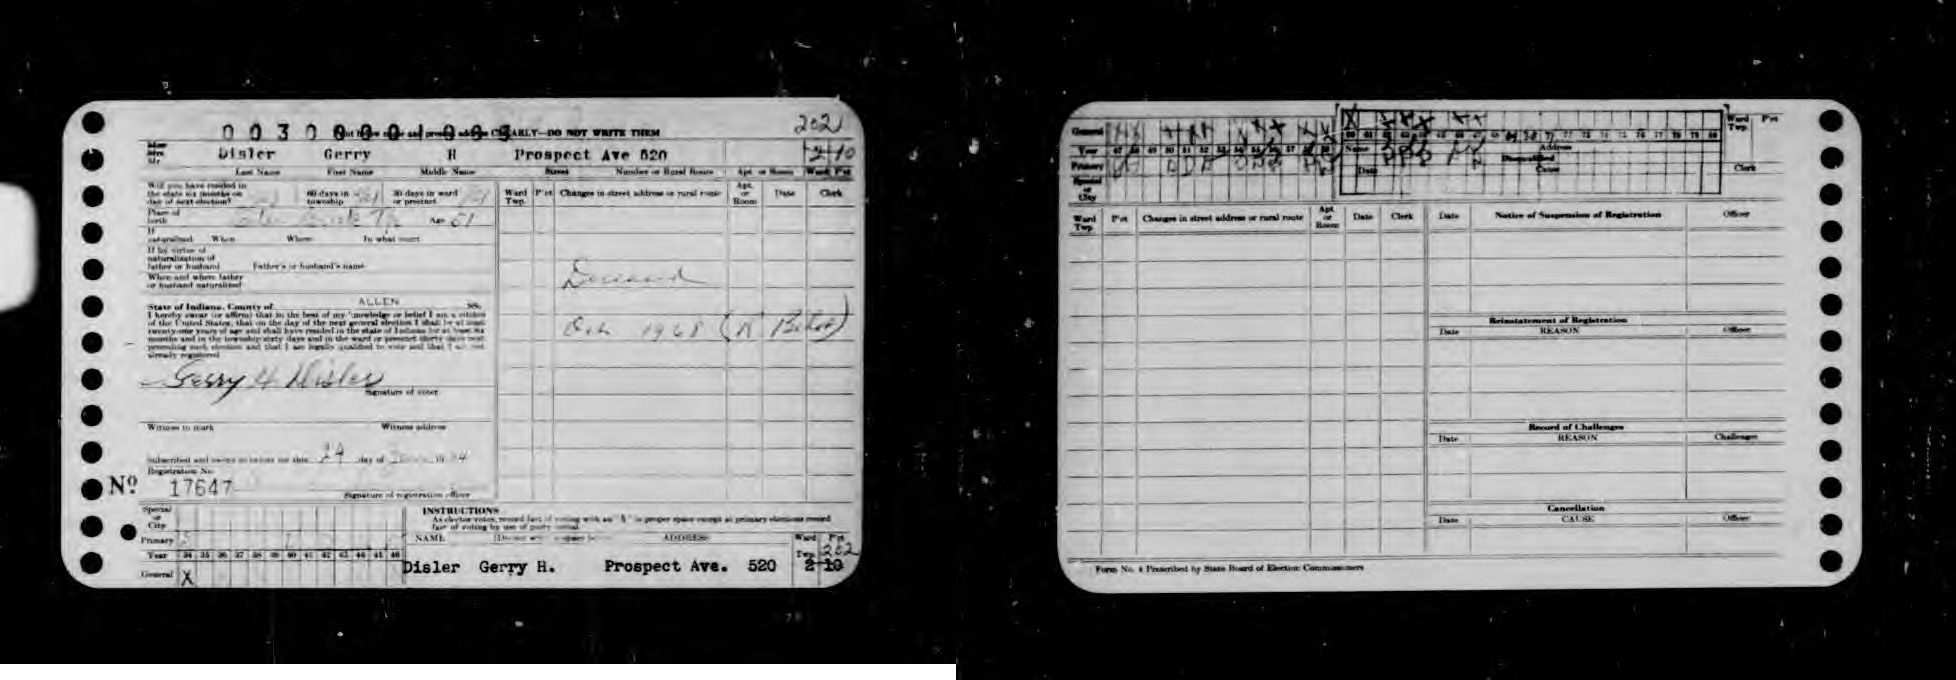 0030000 1003
CLEARLY—DO NOT WRITE THEM
202
Miss
Mrs
Mr
Disler Gerry H Prospect Ave 520 2 10
Last Name First Name Middle Name Street Number or Rural Route Apt. or Room Ward P'ct
Will you have resided in
the state six months on
day of next election?
60 days in
township
30 days in ward
or precinct
Place of
birth
Age 51
If
naturalized When Where In what court
If by virtue of
naturalization of
father or husband Father's or husband's name
When and where father
or husband naturalized
State of Indiana, County of ALLEN SS.
I hereby swear (or affirm) that to the best of my knowledge or belief I am a citizen
of the United States; that on the day of the next general election I shall be at least
twenty-one years of age and shall have resided in the state of Indiana for at least six
months and in the township sixty days and in the ward or precinct thirty days next
preceding such election and that I am legally qualified to vote and that I am not
already registered
Gerry H Disler
Signature of voter
Witness to mark Witness address
Subscribed and sworn to before me this 29 day of 19 34
Registration No.
No. 17647
Signature of registration officer
Ward
Twp.
P'ct Changes in street address or rural route
Apt.
or
Room
Date Clerk
Deceased
Oct 1968
Special
or
City
Primary
Year 34 35 36 37 38 39 40 41 42 43 44 45 46
General X
INSTRUCTIONS
As elector votes, record fact of voting with an "X" in proper space except at primary elections record
fact of voting by use of party initial.
NAME ADDRESS Ward P'ct
Twp. 202
Disler Gerry H. Prospect Ave. 520 2 10
General
Year 47 48 49 50 51 52 53 54 55 56 57 58 59
Primary
Special
or
City
60 61 62 63 64 65 66 67 68 69 70 71 72 73 74 75 76 77 78 79 80
Name Address
Disqualified
Date Cause
Ward
Twp.
P'ct
Clerk
Ward
Twp.
P'ct Changes in street address or rural route
Apt
or
Room
Date Clerk
Date Notice of Suspension of Registration Officer
Reinstatement of Registration
Date REASON Officer
Record of Challenges
Date REASON Challenger
Cancellation
Date CAUSE Officer
Form No. 4 Prescribed by State Board of Election Commissioners